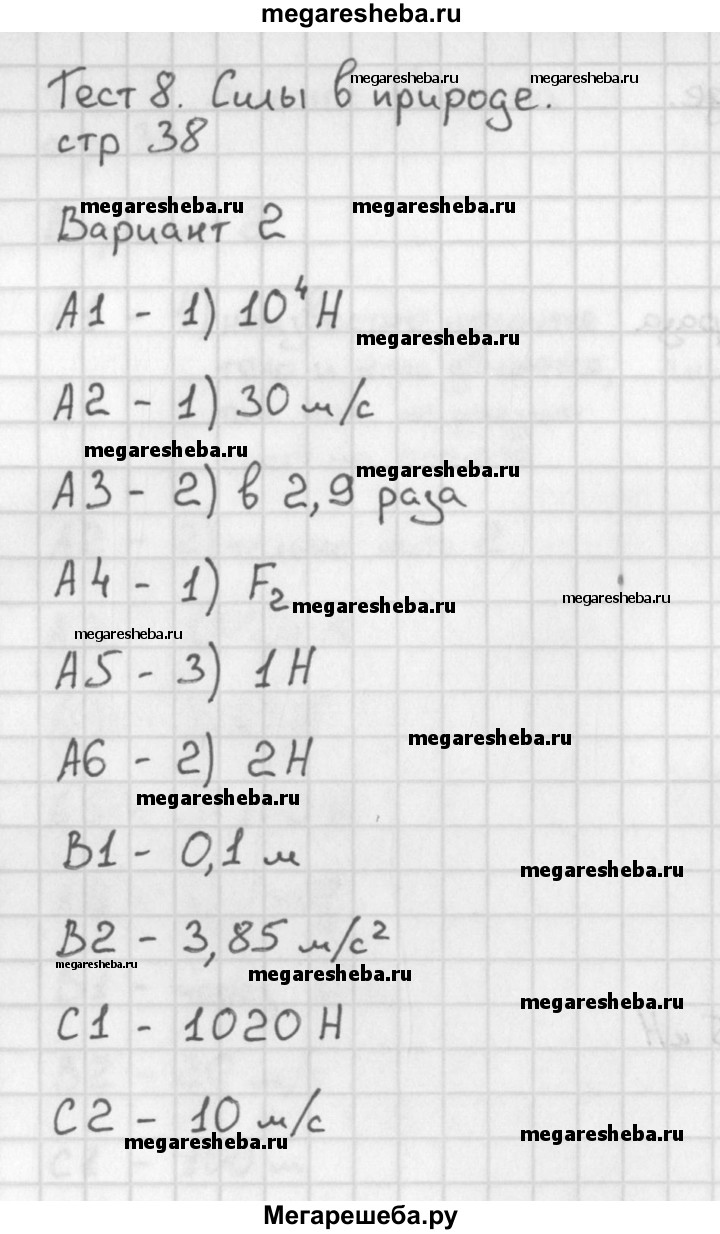 megaresheba.ru
Тест 8. Силы в природе.
megaresheba.ru megaresheba.ru
стр 38
megaresheba.ru megaresheba.ru
Вариант 2
А1 - 1) 10⁴ Н
megaresheba.ru
А2 - 1) 30 м/с
megaresheba.ru
megaresheba.ru
А3 - 2) в 2,9 раза
А4 - 1) F₂
megaresheba.ru megaresheba.ru
megaresheba.ru
А5 - 3) 1 Н
megaresheba.ru
А6 - 2) 2 Н
megaresheba.ru
В1 - 0,1 м
megaresheba.ru
В2 - 3,85 м/с²
megaresheba.ru
megaresheba.ru
megaresheba.ru
С1 - 1020 Н
С2 - 10 м/с
megaresheba.ru
megaresheba.ru
Мегарешеба.ру